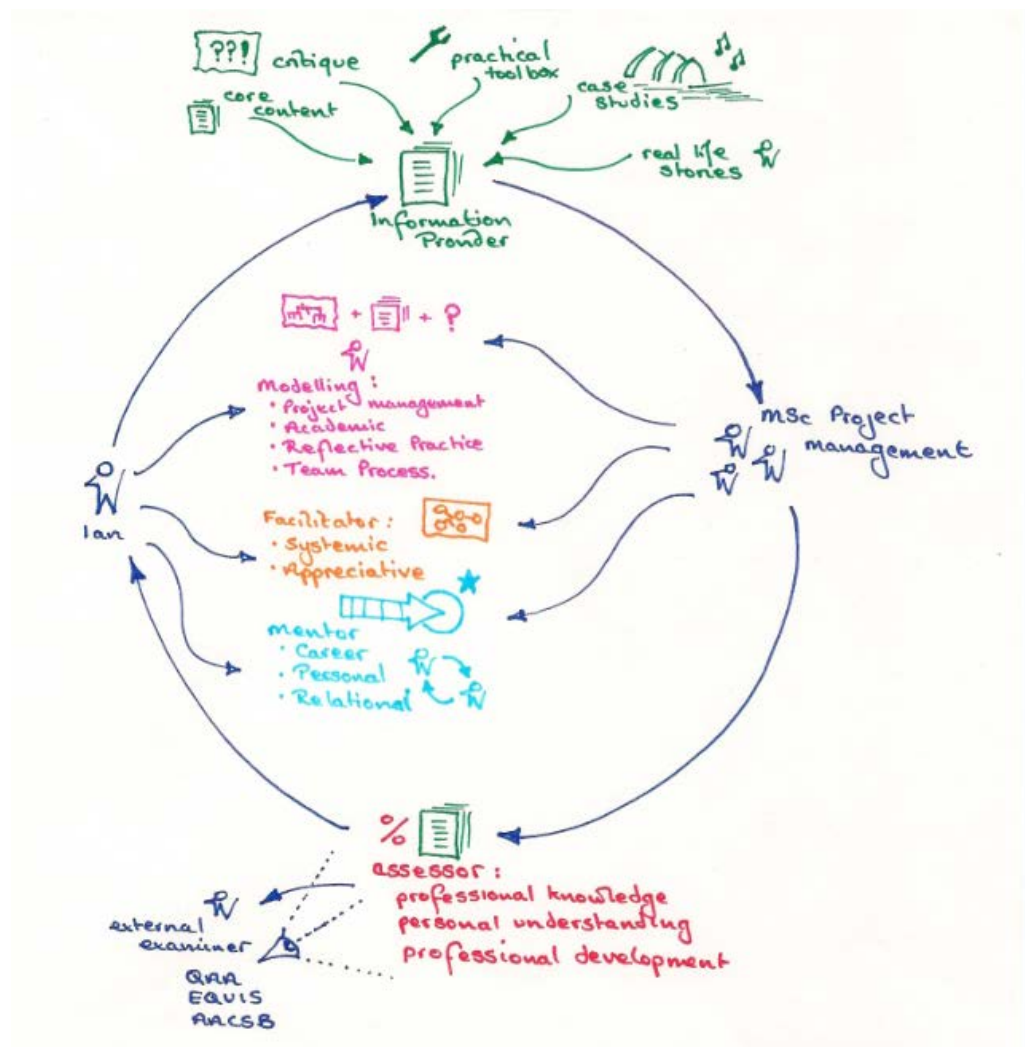 ??!
critique
practical
toolbox
case
studies
core
content
real life
stories
Information
Provider
+ + ?
Modelling :
• Project management
• Academic
• Reflective Practice
• Team Process.
MSc Project
management
Ian
Facilitator :
• Systemic
• Appreciative
mentor
• Career
• Personal
• Relational
%
assessor :
professional knowledge
personal understanding
professional development
external
examiner
QAA
EQUIS
AACSB